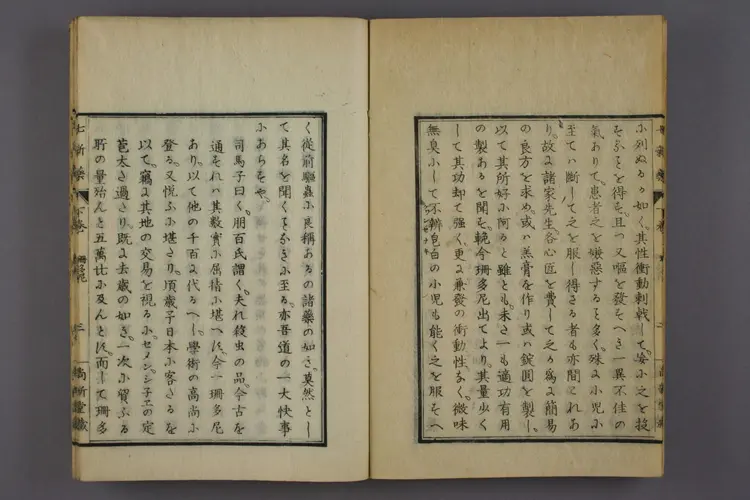 に列ぬるか如く其性衝動刺戟して妄に之を投
するを得す且つ又嘔を發すへき一異不佳の
氣ありて患者之を嫌惡すると多く殊に小児に
至てハ斷して之を服し得さる者も亦間これあ
り故に諸家先生各心匠を費して之か爲に簡易
の良方を求め或ハ羔膏を作り或ハ錠圓を製し
以て其所好に阿ると雖とも未さ一も適功有用
の製あるを聞を輓今珊多尼出てより其量少く
して其功却て強く更に兼發の衝動性なく微味
無臭にして不辨皂白の小児も能く之を服すへ
く從前驅蟲に良稱あるの諸藥の如き莫然とし
て其名を聞くもなきに至る亦吾道の一大快事
にあらすや
司馬子曰く朋百氏謂く夫れ殺虫の品今古を
通をれハ其数實に屈指に堪へ須今一珊多尼
あり以て他の千百に代るへし學術の高尚に
登る又悦ふに堪さり頃歳予日本に客さるを
以て竊に其地の交易を視るにセメンシ子エの定
苞太さ過さり既に去歳の如き一次に賀ふる
所の量殆んと五萬廿に及んと須而して珊多
七新藥
下巻
珊多尼
三